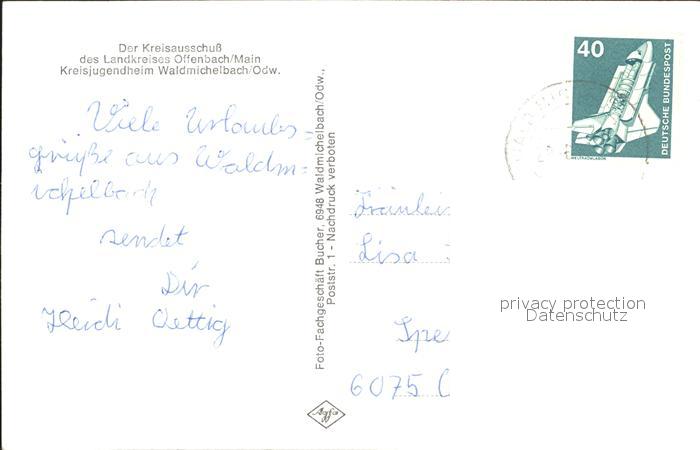 Der Kreisausschuß
des Landkreises Offenbach/Main
Kreisjugendheim Waldmichelbach/Odw.
Viele Urlaubs=
grüße aus Waldm=
ichelbach
sendet
Dir
Heidi Oettig
Foto-Fachgeschäft Bucher, 6948 Waldmichelbach/Odw.,
Poststr. 1 - Nachdruck verboten
Agfa
40
DEUTSCHE BUNDESPOST
WELTRAUMLABOR
Fräulein
Lisa
6075
privacy protection
Datenschutz